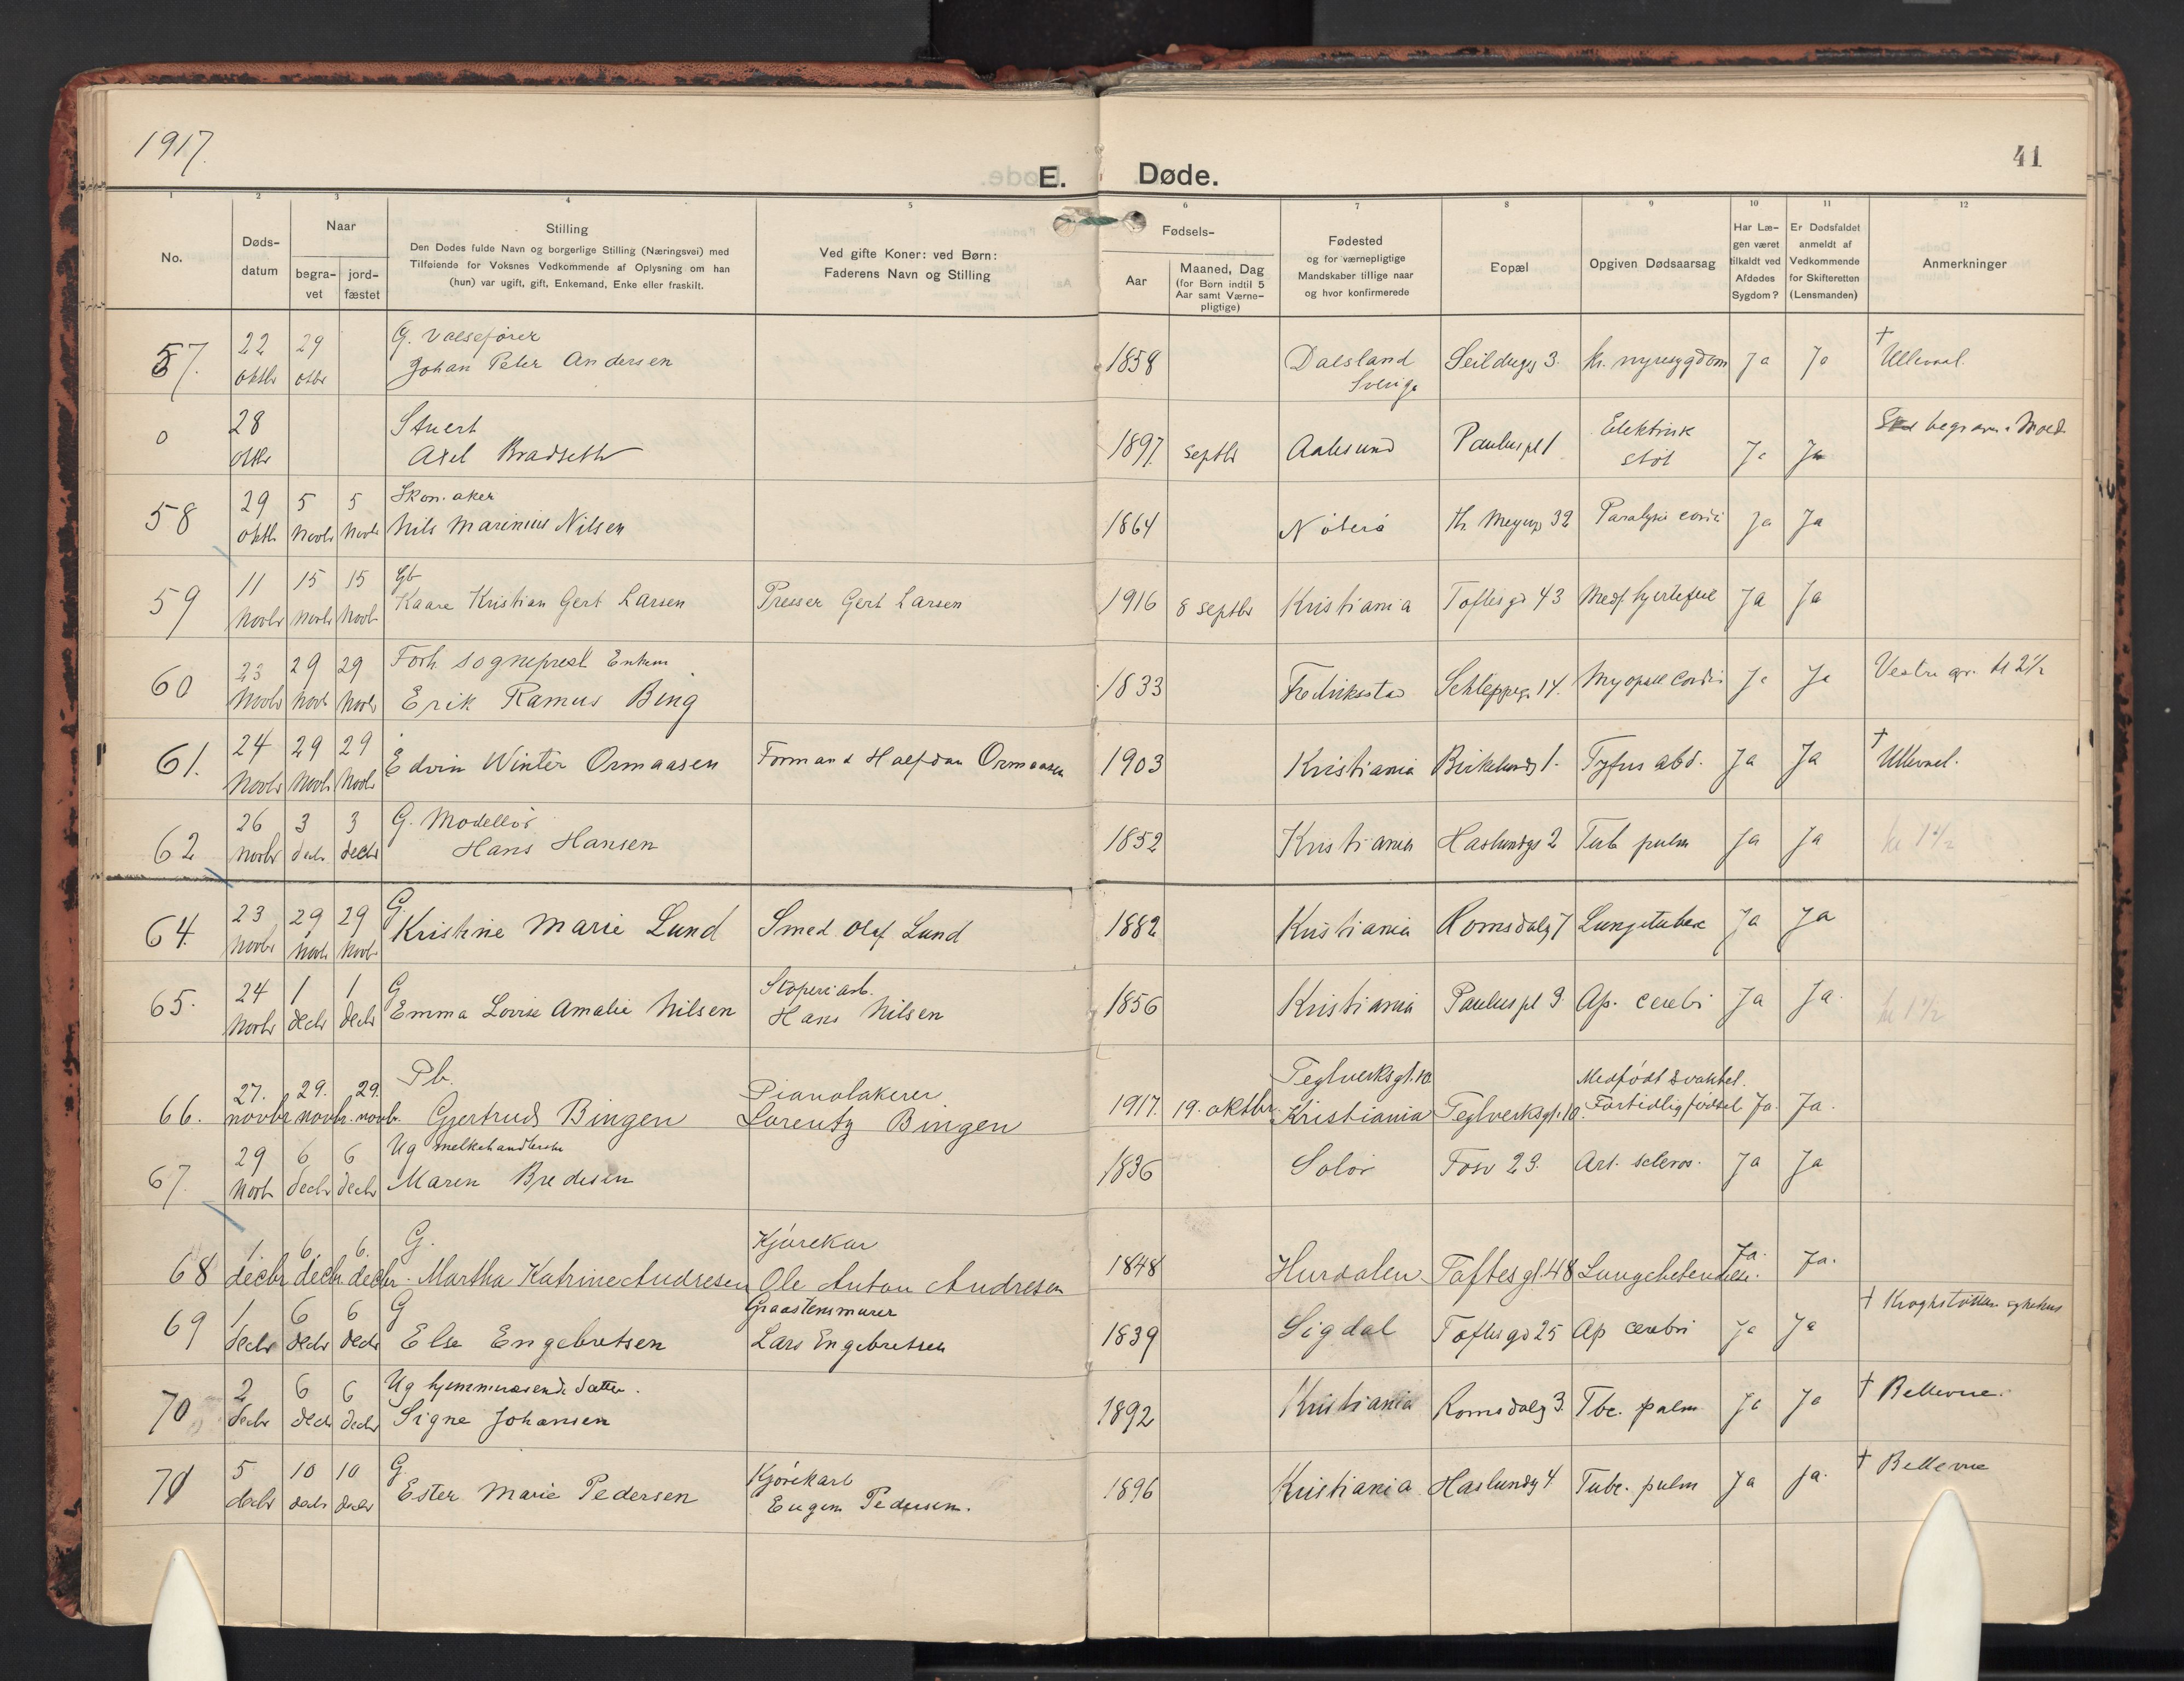 1917.
41
E. Døde.
1 2 3 4 5 6 7 8 9 10 11 12
No.
Døds-
datum
Naar
begra-
vet
jord-
fæstet
Stilling
Den Dødes fulde Navn og borgerlige Stilling (Næringsvei) med
Tilføiende for Voksnes Vedkommende af Oplysning om han
(hun) var ugift, gift, Enkemand, Enke eller fraskilt.
Ved gifte Koner: ved Børn:
Faderens Navn og Stilling
Fødsels-
Aar
Maaned, Dag
(for Børn indtil 5
Aar samt Værne-
pligtige)
Fødested
og for værnepligtige
Mandskaber tillige naar
og hvor konfirmerede
Bopæl
Opgiven Dødsaarsag
Har Læ-
gen været
tilkaldt ved
Afdødes
Sygdom?
Er Dødsfaldet
anmeldt af
Vedkommende
for Skifteretten
(Lensmanden)
Anmerkninger
22 29 G. Valsefører
57. oktbr otbr Johan Peter Andersen 1858 Dalsland Seildugsg 3. kr. nyresygdom Ja Ja † Ullevaal.
Sverige
28 Stuert
0 otbr Axel Bradseth 1897 septbr Aalesund Pauluspl 1 Elektrisk støt Ja Ja begraves i Mold
29 5 5
58 oktb. novbr novbr Nils Marinius Nilsen 1864 Nøterø Th. Meyersg 32 Paralysis cordis Ja Ja
11 15 15 Gb
59 novbr novbr novbr Kaare Kristian Gert Larsen Presser Gert Larsen 1916 8 septbr Kristiania Toftesgd 43 Medf. hjertefeil Ja Ja
23 29 29 Forh. sogneprest Enkem
60 novbr novbr novbr Erik Ramus Bing 1833 Fredriksstad Schleppegr. 14. Cordis Ja Ja Vestre gr. kl 2½
24 29 29
61. novbr novbr novbr Edvin Winter Ormaasen Formand Halfdan Ormaasen 1903 Kristiania Birkelundsg 1. Tyfus abd. Ja Ja † Ullevaal.
26 3 3 G. Modellør
62 novbr decbr decbr Hans Hansen 1852 Kristiania Haslundsgs 2 Tub pulm Ja Ja kl 1½
23 29 29 G.
64. novbr novbr novbr Kristine Marie Lund Smed Olaf Lund 1882 Kristiania Romsdalsg 7 Lungetuberk Ja Ja
24 1 1 G Støperiarb.
65. novbr decbr decbr Emma Lovise Amalie Nilsen Hans Nilsen 1856 Kristiania Paulus pl 9. Ap. cerebri Ja Ja. kl 1½
27. 29. 29. Pb. Pianolakerer Teglverksgt. 10 Medfødt svakhet.
66. novbr novbr. novbr. Gjertrud Bingen Lorentz Bingen 1917. 19. oktbr. Kristiania Teglverksgt. 10. Fortidlig fødsel Ja. Ja.
29 6 6 Ug melkehandlerske
67. novbr decbr decbr Maren Bredesen 1836 Solør Fosv 23. Art. scleros. Ja Ja
1. 6. 6. G. Kjørekar
68 decbr decbr. decbr. Martha Katrine Andresen Ole Anton Andresen 1848 Hurdalen Toftesgt. 48 Lungebetendelse. Ja. Ja.
1 6 6 G Graastensmurer
69 decbr decbr decbr Else Engebretsen Lars Engebretsen 1839 Sigdal Toftesgd 25 Ap cerebri Ja Ja † Kroghstøtten sykehus
2 6 6 Ug hjemmeværende datter.
70 decbr decbr decbr Signe Johansen 1892 Kristiania Romsdalsg 3. Tbc. pulm Ja Ja † Bellevue.
5 10 10 G Kjørekarl
71 decbr decbr decbr Ester Marie Pedersen Eugen Pedersen. 1896 Kristiania Haslundsg 4 Tubc. pulm Ja Ja. † Bellevue